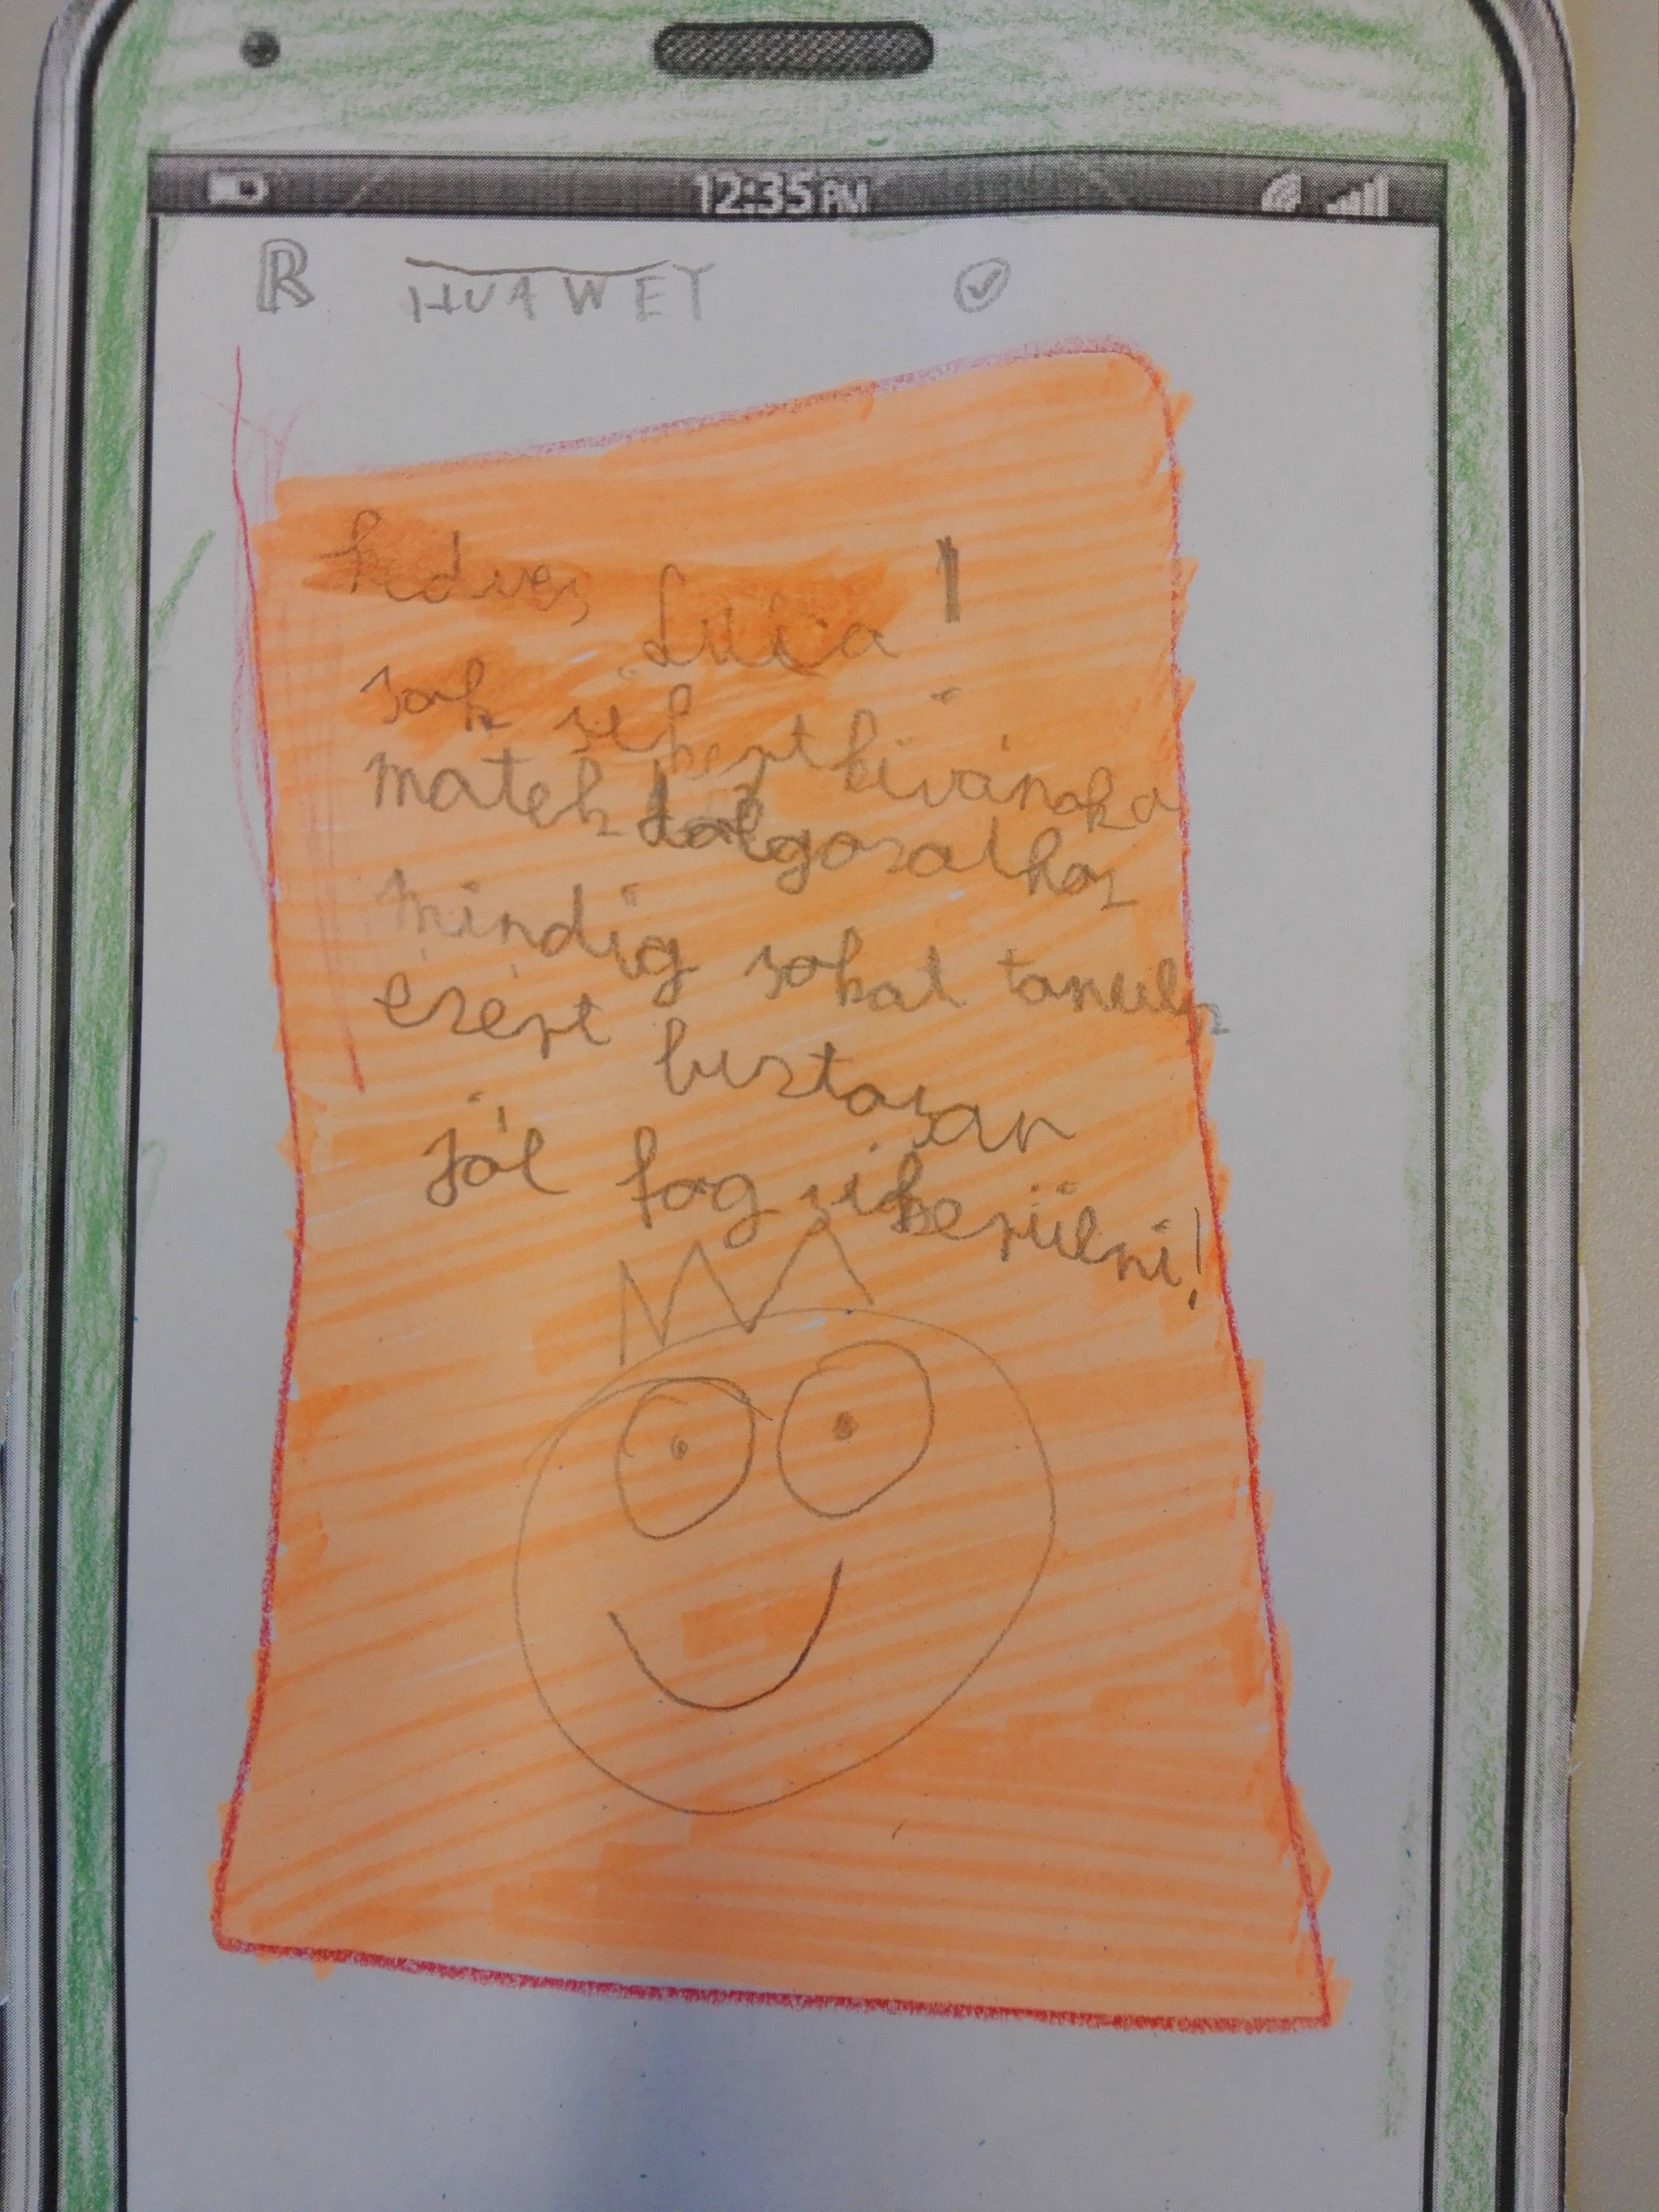 12:35 PM
R HUAWEY
kedves Luca!
sok sikert kivánok a
matek dolgozathoz
mindig sokat tanulsz
ezért biztosan
jól fog sikerülni!